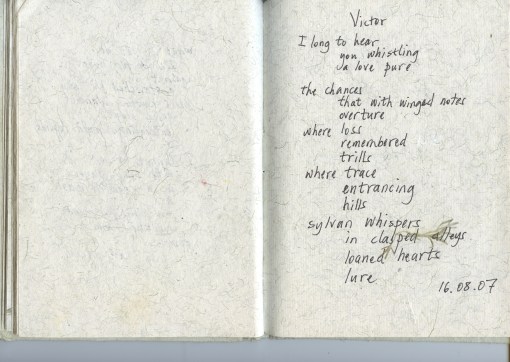 Victor
I long to hear
you whistling
a love pure
the chances
that with winged notes
overture
where loss
remembered
trills
where trace
entrancing
hills
sylvan whispers
in clasped alleys
loaned hearts
lure
16.08.07